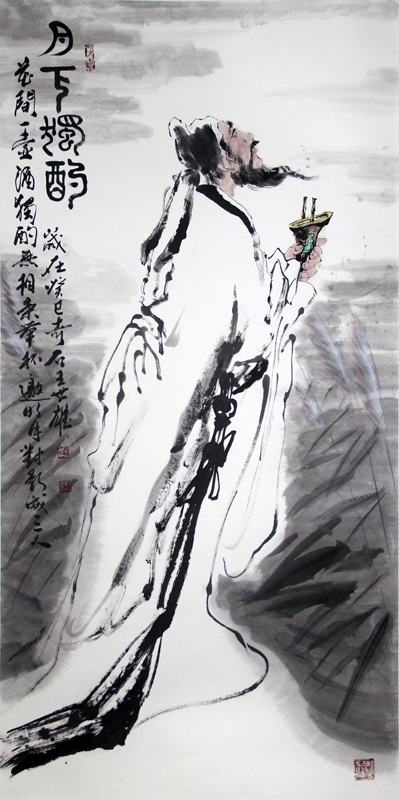 月下獨酌
花間一壺酒獨酌無相亲舉杯邀明月對影成三人
歲在癸巳奇石王世雄